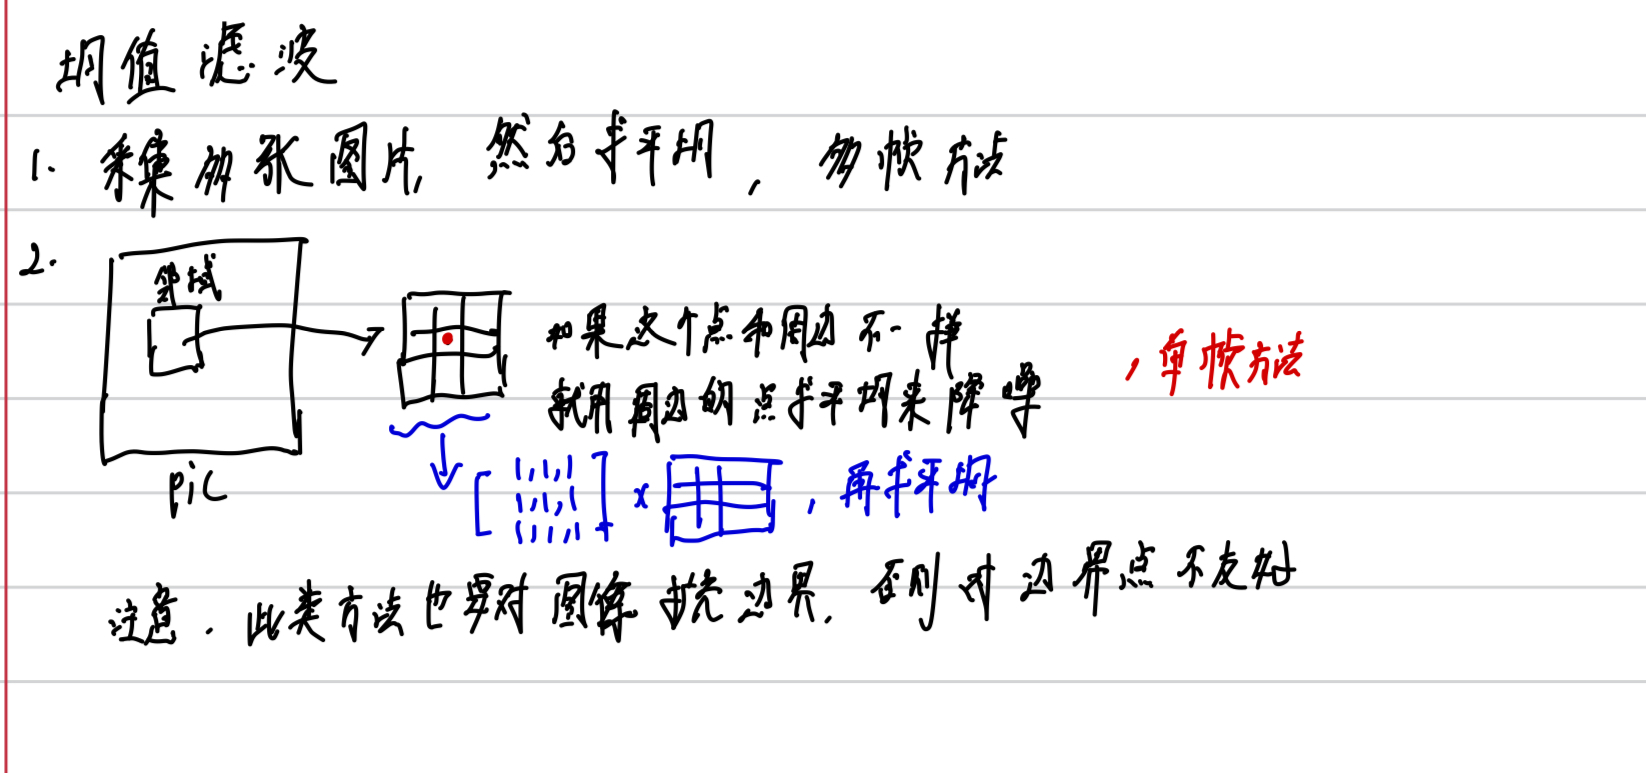 均值滤波
1. 采集多张图片, 然后求平均, 多帧方法
2.
邻域
如果这个点和周边不一样
就用周边的点求平均来降噪
, 单帧方法
pic
[1,1,1
1,1,1
1,1,1] x , 再求平均
注意. 此类方法也要对图像扩充边界. 否则对边界点不友好